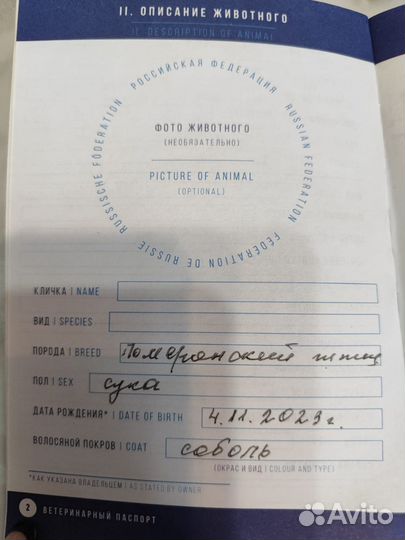 II. ОПИСАНИЕ ЖИВОТНОГО
II. DESCRIPTION OF ANIMAL
РОССИЙСКАЯ ФЕДЕРАЦИЯ
RUSSIAN FEDERATION
FÉDÉRATION DE RUSSIE
RUSSISCHE FÖDERATION
ФОТО ЖИВОТНОГО
(НЕОБЯЗАТЕЛЬНО)
PICTURE OF ANIMAL
(OPTIONAL)
КЛИЧКА | NAME
ВИД | SPECIES
ПОРОДА | BREED Померанский шпиц
ПОЛ | SEX сука
ДАТА РОЖДЕНИЯ* | DATE OF BIRTH 4.11.2023г.
ВОЛОСЯНОЙ ПОКРОВ | COAT соболь
(ОКРАС И ВИД | COLOUR AND TYPE)
*КАК УКАЗАНА ВЛАДЕЛЬЦЕМ | AS STATED BY OWNER
2 ВЕТЕРИНАРНЫЙ ПАСПОРТ
Avito